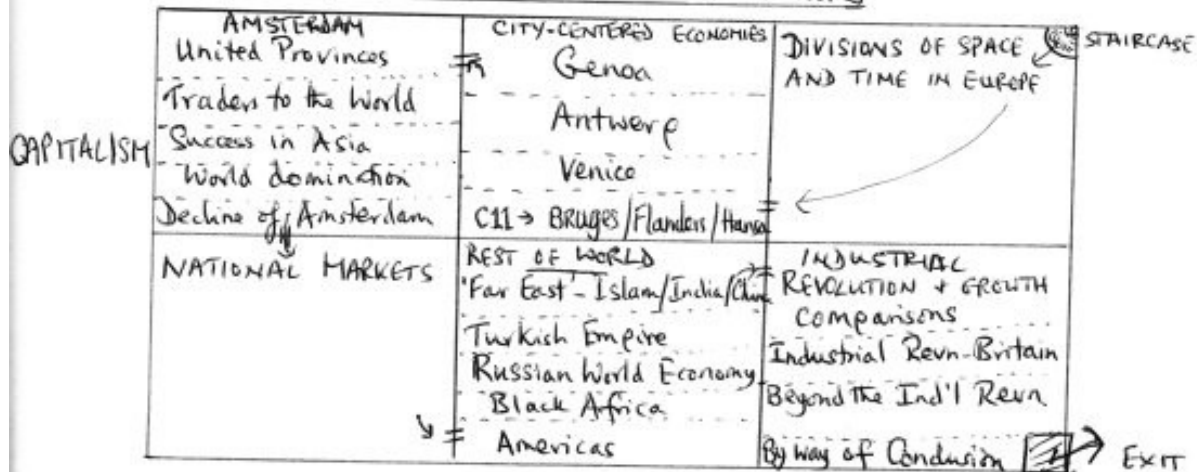 AMSTERDAM
United Provinces
Traders to the World
Success in Asia
World domination
Decline of Amsterdam
CITY-CENTERED ECONOMIES
Genoa
Antwerp
Venice
C11 → BRUGES/Flanders/Hansa
DIVISIONS OF SPACE
AND TIME IN EUROPE
STAIRCASE
CAPITALISM
NATIONAL MARKETS
REST OF WORLD
'Far East' - Islam/India/China
Turkish Empire
Russian World Economy
Black Africa
Americas
INDUSTRIAL
REVOLUTION + GROWTH
Comparisons
Industrial Revn-Britain
Beyond the Ind'l Revn
By way of Conclusion
EXIT